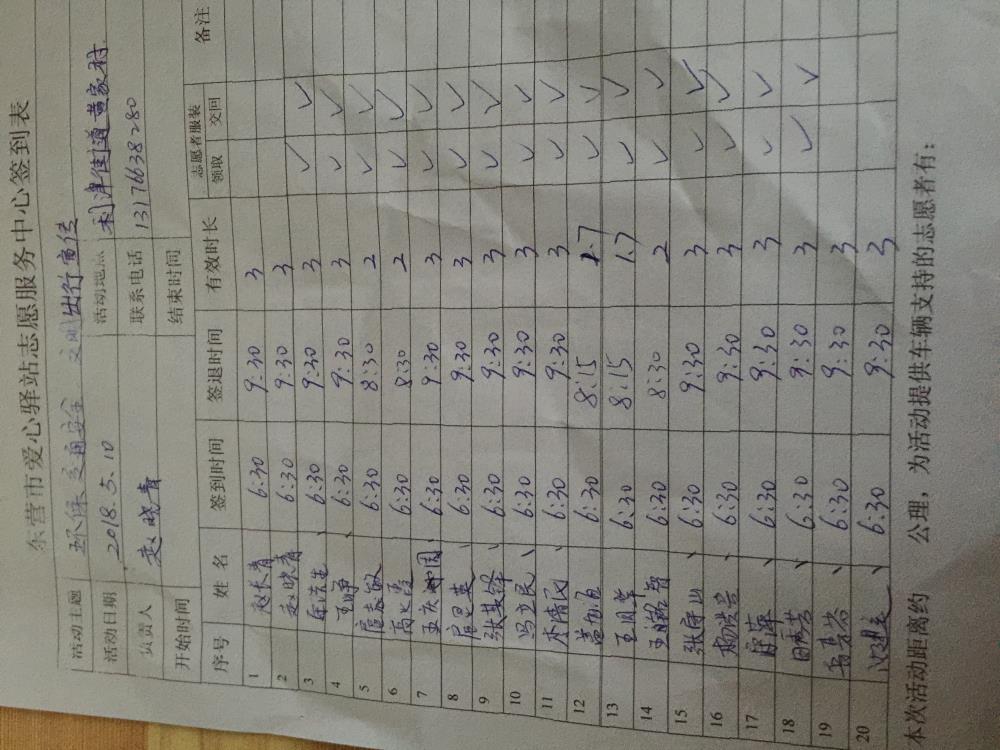 东营市爱心驿站志愿服务中心签到表
活动主题 环保 交通安全 文明出行宣传
活动日期 2018.5.10 活动地点 利津街道黄家村
负责人 赵晓青 联系电话 13176638280
开始时间 结束时间
序号 姓名 签到时间 签退时间 有效时长 志愿者服装 领取 交回 备注
1 6:30 9:30 3
2 赵晓青 6:30 9:30 3
3 6:30 9:30 3 ✓ ✓
4 6:30 9:30 3 ✓ ✓
5 6:30 8:30 2 ✓ ✓
6 6:30 8:30 2 ✓ ✓
7 6:30 9:30 3 ✓ ✓
8 6:30 9:30 3 ✓ ✓
9 6:30 9:30 3 ✓ ✓
10 冯立民 6:30 9:30 3 ✓ ✓
11 6:30 9:30 3 ✓ ✓
12 6:30 8:15 1.7 ✓ ✓
13 6:30 8:15 1.7 ✓ ✓
14 6:30 8:30 2 ✓ ✓
15 张守山 6:30 9:30 3 ✓ ✓
16 6:30 9:30 3 ✓ ✓
17 6:30 9:30 3 ✓ ✓
18 6:30 9:30 3 ✓ ✓
19 6:30 9:30 3
20 6:30 9:30 3
本次活动距离约 公理，为活动提供车辆支持的志愿者有：